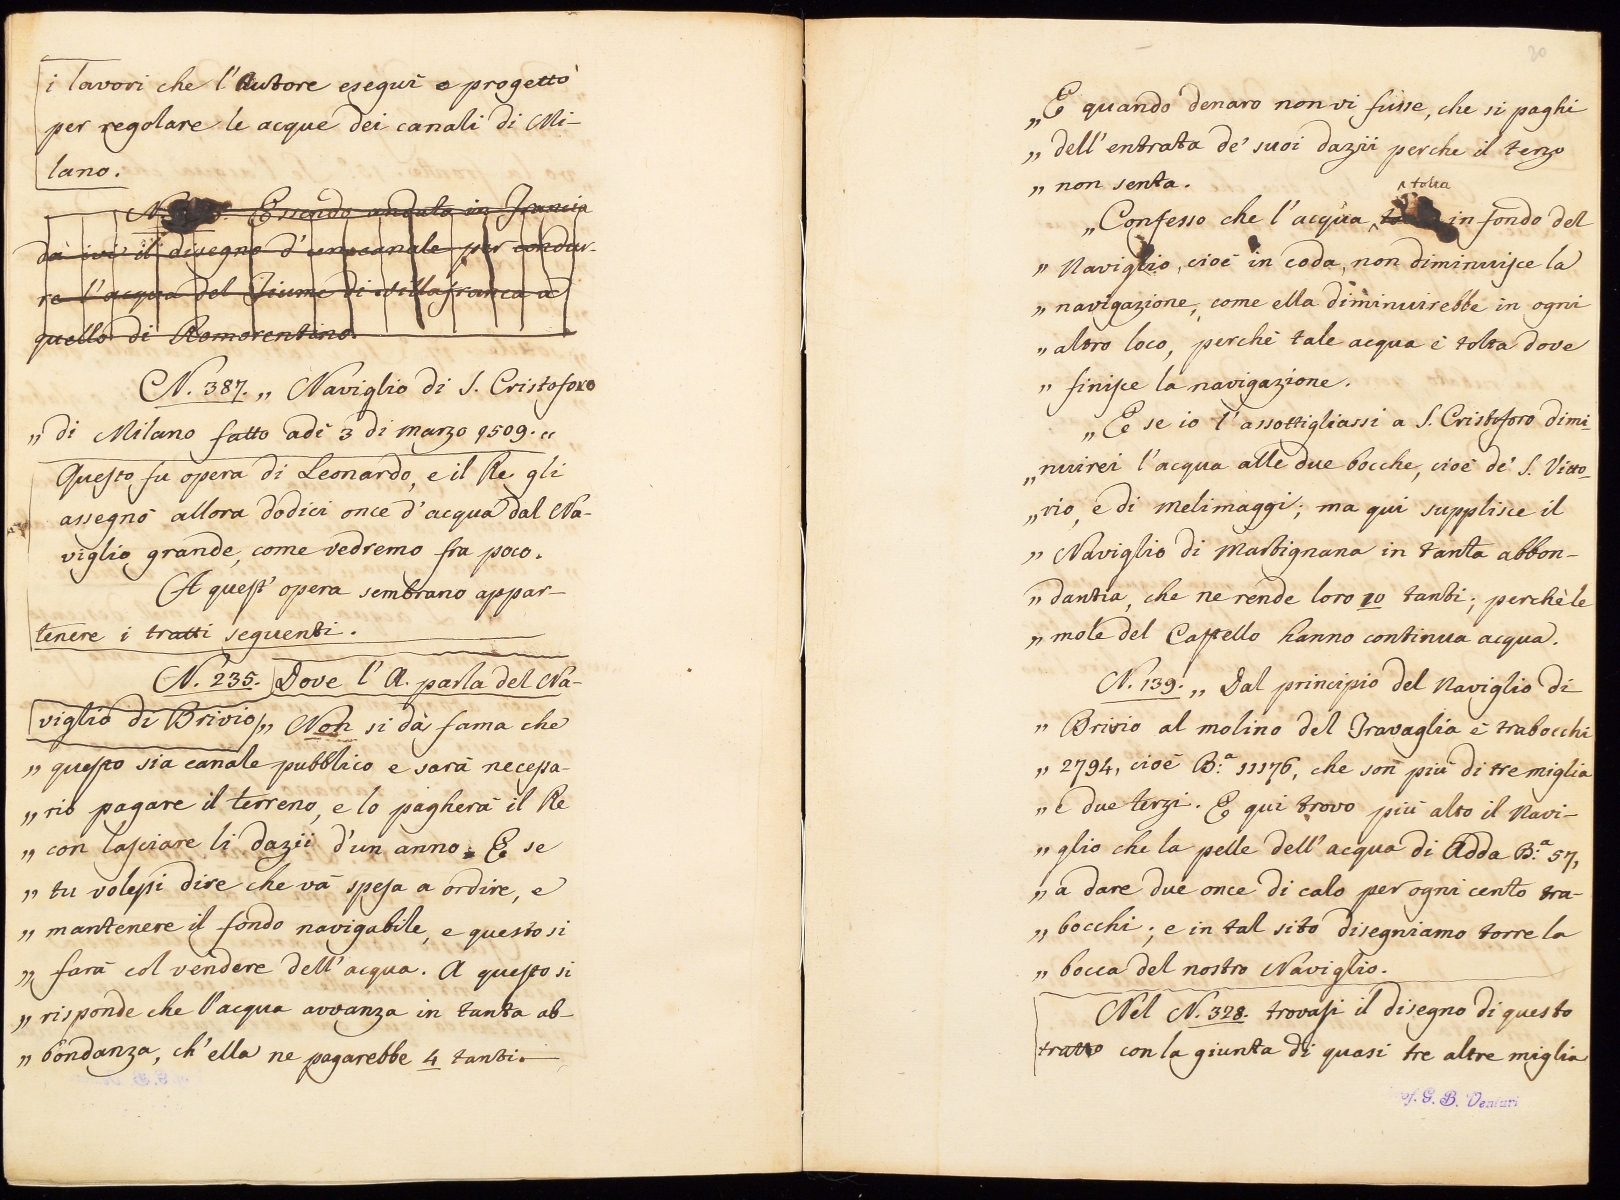 i lavori che l'Autore eseguì o progettò
per regolare le acque dei canali di Mi-
lano.
N. Essendo andato in Francia
dà ivi il disegno d'uno canale per condur-
re l'acqua del Fiume di Villafranca a
quello di Romorentino.
N. 387. „ Naviglio di S. Cristoforo
„ di Milano fatto adì 3 di marzo 1509. „
Questo fu opera di Leonardo, e il Re gli
assegnò allora dodici once d'acqua dal Na-
viglio grande, come vedremo fra poco.
A quest'opera sembrano appar-
tenere i tratti seguenti.
N. 235. Dove l'A. parla del Na-
viglio di Brivio „ Non si dà fama che
„ questo sia canale pubblico e sarà necessa-
„ rio pagare il terreno, e lo pagherà il Re
„ con lasciare li dazii d'un anno. E se
„ tu volessi dire che và spesa a ordire, e
„ mantenere il fondo navigabile, e questo si
„ farà col vendere dell'acqua. A questo si
„ risponde che l'acqua avvanza in tanta ab-
„ bondanza, ch'ella ne pagarebbe 4 tanti.
20
„ E quando denaro non vi fusse, che si paghi
„ dell'entrata de' suoi dazii perche il terzo
„ non senta.
tolta
„ Confesso che l'acqua in fondo del
„ Naviglio, cioè in coda, non diminuisce la
„ navigazione, come ella diminuirebbe in ogni
„ altro loco, perchè tale acqua è tolta dove
„ finisce la navigazione.
„ E se io l'assottigliassi a S. Cristoforo dimi-
„ nuirei l'acqua alle due bocche, cioè de' S. Vitto-
„ rio, e di melimaggi; ma qui supplisce il
„ Naviglio di Martignana in tanta abbon-
„ dantia, che ne rende loro 10 tanti; perchè le
„ mole del Castello hanno continua acqua.
N. 139. „ Dal principio del Naviglio di
„ Brivio al molino del Travaglia è trabocchi
„ 2794, cioè B.a 11176, che son più di tre miglia
„ e due terzi. E qui trovo più alto il Navi-
„ glio che la pelle dell'acqua di Adda B.a 57,
„ a dare due once di calo per ogni cento tra-
„ bocchi; e in tal sito disegniamo torre la
„ bocca del nostro Naviglio.
Nel N. 328. trovasi il disegno di questo
tratto con la giunta di quasi tre altre miglia
G. B. Venturi